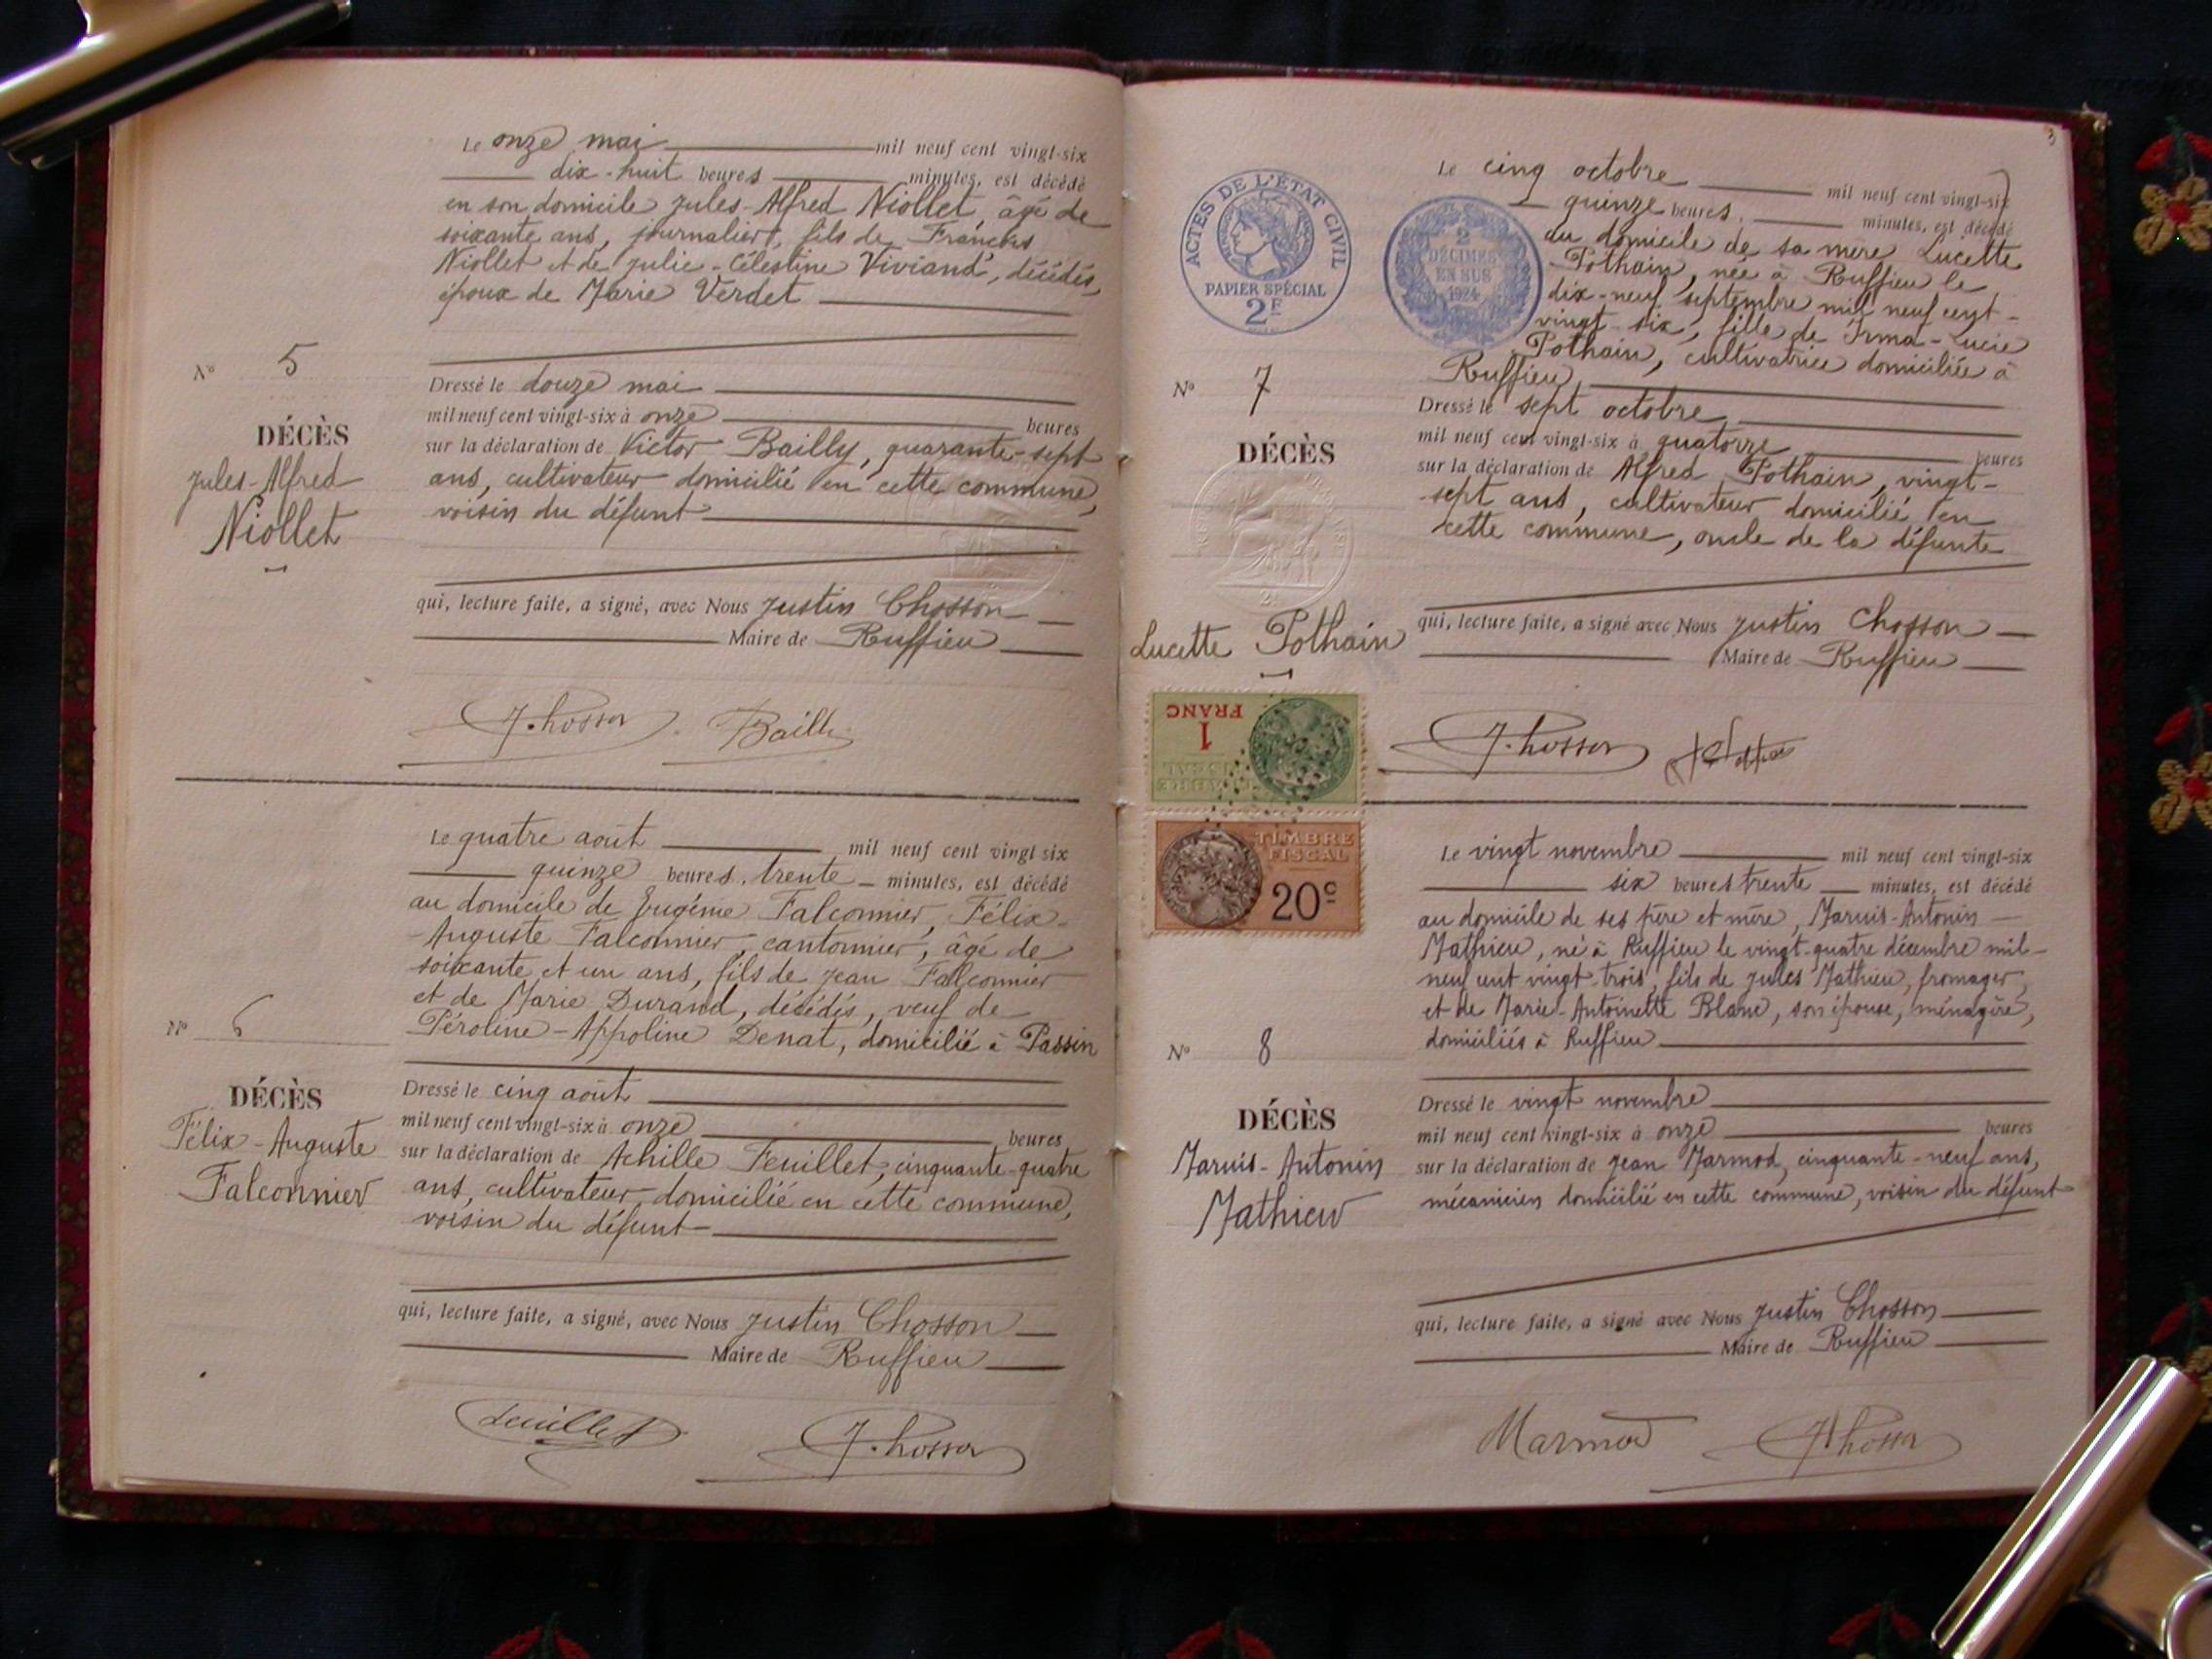 Le onze mai mil neuf cent vingt-six
dix-huit heures minutes, est décédé
en son domicile Jules-Alfred Niollet, âgé de
soixante ans, journalier, fils de François
Niollet et de Julie-Célestine Viviand, décédés,
époux de Marie Verdet
N° 5
DÉCÈS
Jules-Alfred
Niollet
Dressé le douze mai
mil neuf cent vingt-six à onze heures
sur la déclaration de Victor Bailly, quarante-sept
ans, cultivateur domicilié en cette commune,
voisin du défunt
qui, lecture faite, a signé, avec Nous Justin Chosson
Maire de Ruffieu
J. Chosson Bailly
Le quatre août mil neuf cent vingt-six
quinze heures, trente minutes, est décédé
au domicile de Eugénie Falconnier, Félix-
-Auguste Falconnier, cantonnier, âgé de
soixante et un ans, fils de Jean Falconnier
et de Marie Durand, décédés, veuf de
Péroline-Appoline Denat, domicilié à Passin
N° 6
DÉCÈS
Félix-Auguste
Falconnier
Dressé le cinq août
mil neuf cent vingt-six à onze heures
sur la déclaration de Achille Feuillet, cinquante-quatre
ans, cultivateur domicilié en cette commune,
voisin du défunt
qui, lecture faite, a signé, avec Nous Justin Chosson
Maire de Ruffieu
Feuillet J. Chosson
3
ACTES DE L'ÉTAT CIVIL
PAPIER SPÉCIAL
2F
2
DÉCIMES
EN SUS
1924
Le cinq octobre mil neuf cent vingt-six
quinze heures, minutes, est décédé
au domicile de sa mère Lucette
Pothain, née à Ruffieu le
dix-neuf septembre mil neuf cent-
vingt-six, fille de Irma-Lucie
Pothain, cultivatrice domiciliée à
Ruffieu
N° 7
DÉCÈS
Lucette Pothain
Dressé le sept octobre
mil neuf cent vingt-six à quatorze heures
sur la déclaration de Alfred Pothain, vingt-
sept ans, cultivateur domicilié en
cette commune, oncle de la défunte
qui, lecture faite, a signé avec Nous Justin Chosson
Maire de Ruffieu
J. Chosson
1
FRANC
TIMBRE
FISCAL
TIMBRE
FISCAL
20c
Le vingt novembre mil neuf cent vingt-six
six heures trente minutes, est décédé
au domicile de ses père et mère, Marius-Antonin
Mathieu, né à Ruffieu le vingt-quatre décembre mil-
neuf cent vingt-trois, fils de Jules Mathieu, fromager,
et de Marie-Antoinette Blanc, son épouse, ménagère,
domiciliés à Ruffieu
N° 8
DÉCÈS
Marius-Antonin
Mathieu
Dressé le vingt novembre
mil neuf cent vingt-six à onze heures
sur la déclaration de Jean Marmod, cinquante-neuf ans,
mécanicien domicilié en cette commune, voisin du défunt
qui, lecture faite, a signé avec Nous Justin Chosson
Maire de Ruffieu
Marmod J. Chosson